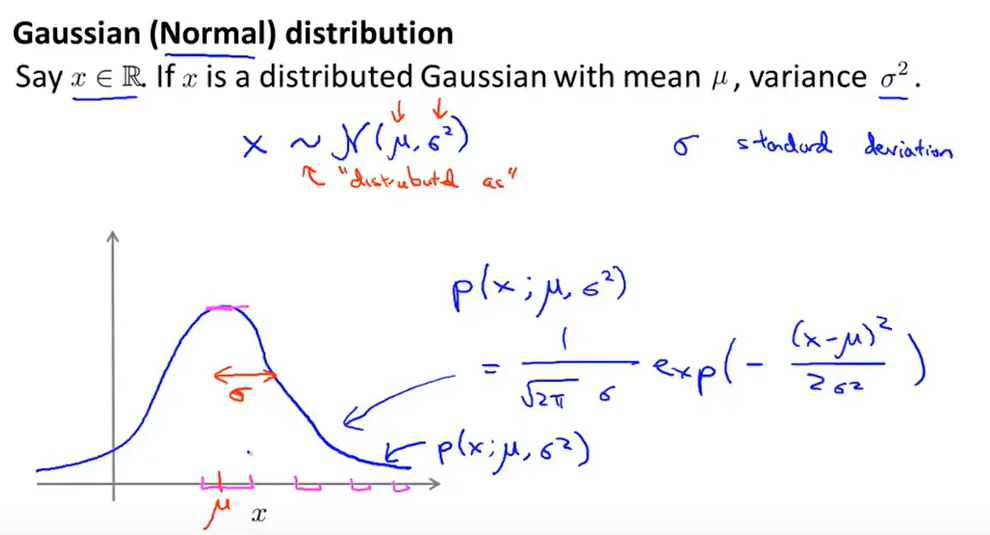 Gaussian (Normal) distribution
Say x ∈ ℝ. If x is a distributed Gaussian with mean μ, variance σ².
x ~ N(μ, σ²)
σ standard deviation
"distributd as"
p(x; μ, σ²)
= 1/(√2π σ) exp(- (x-μ)²/2σ²)
σ
p(x; μ, σ²)
μ
x